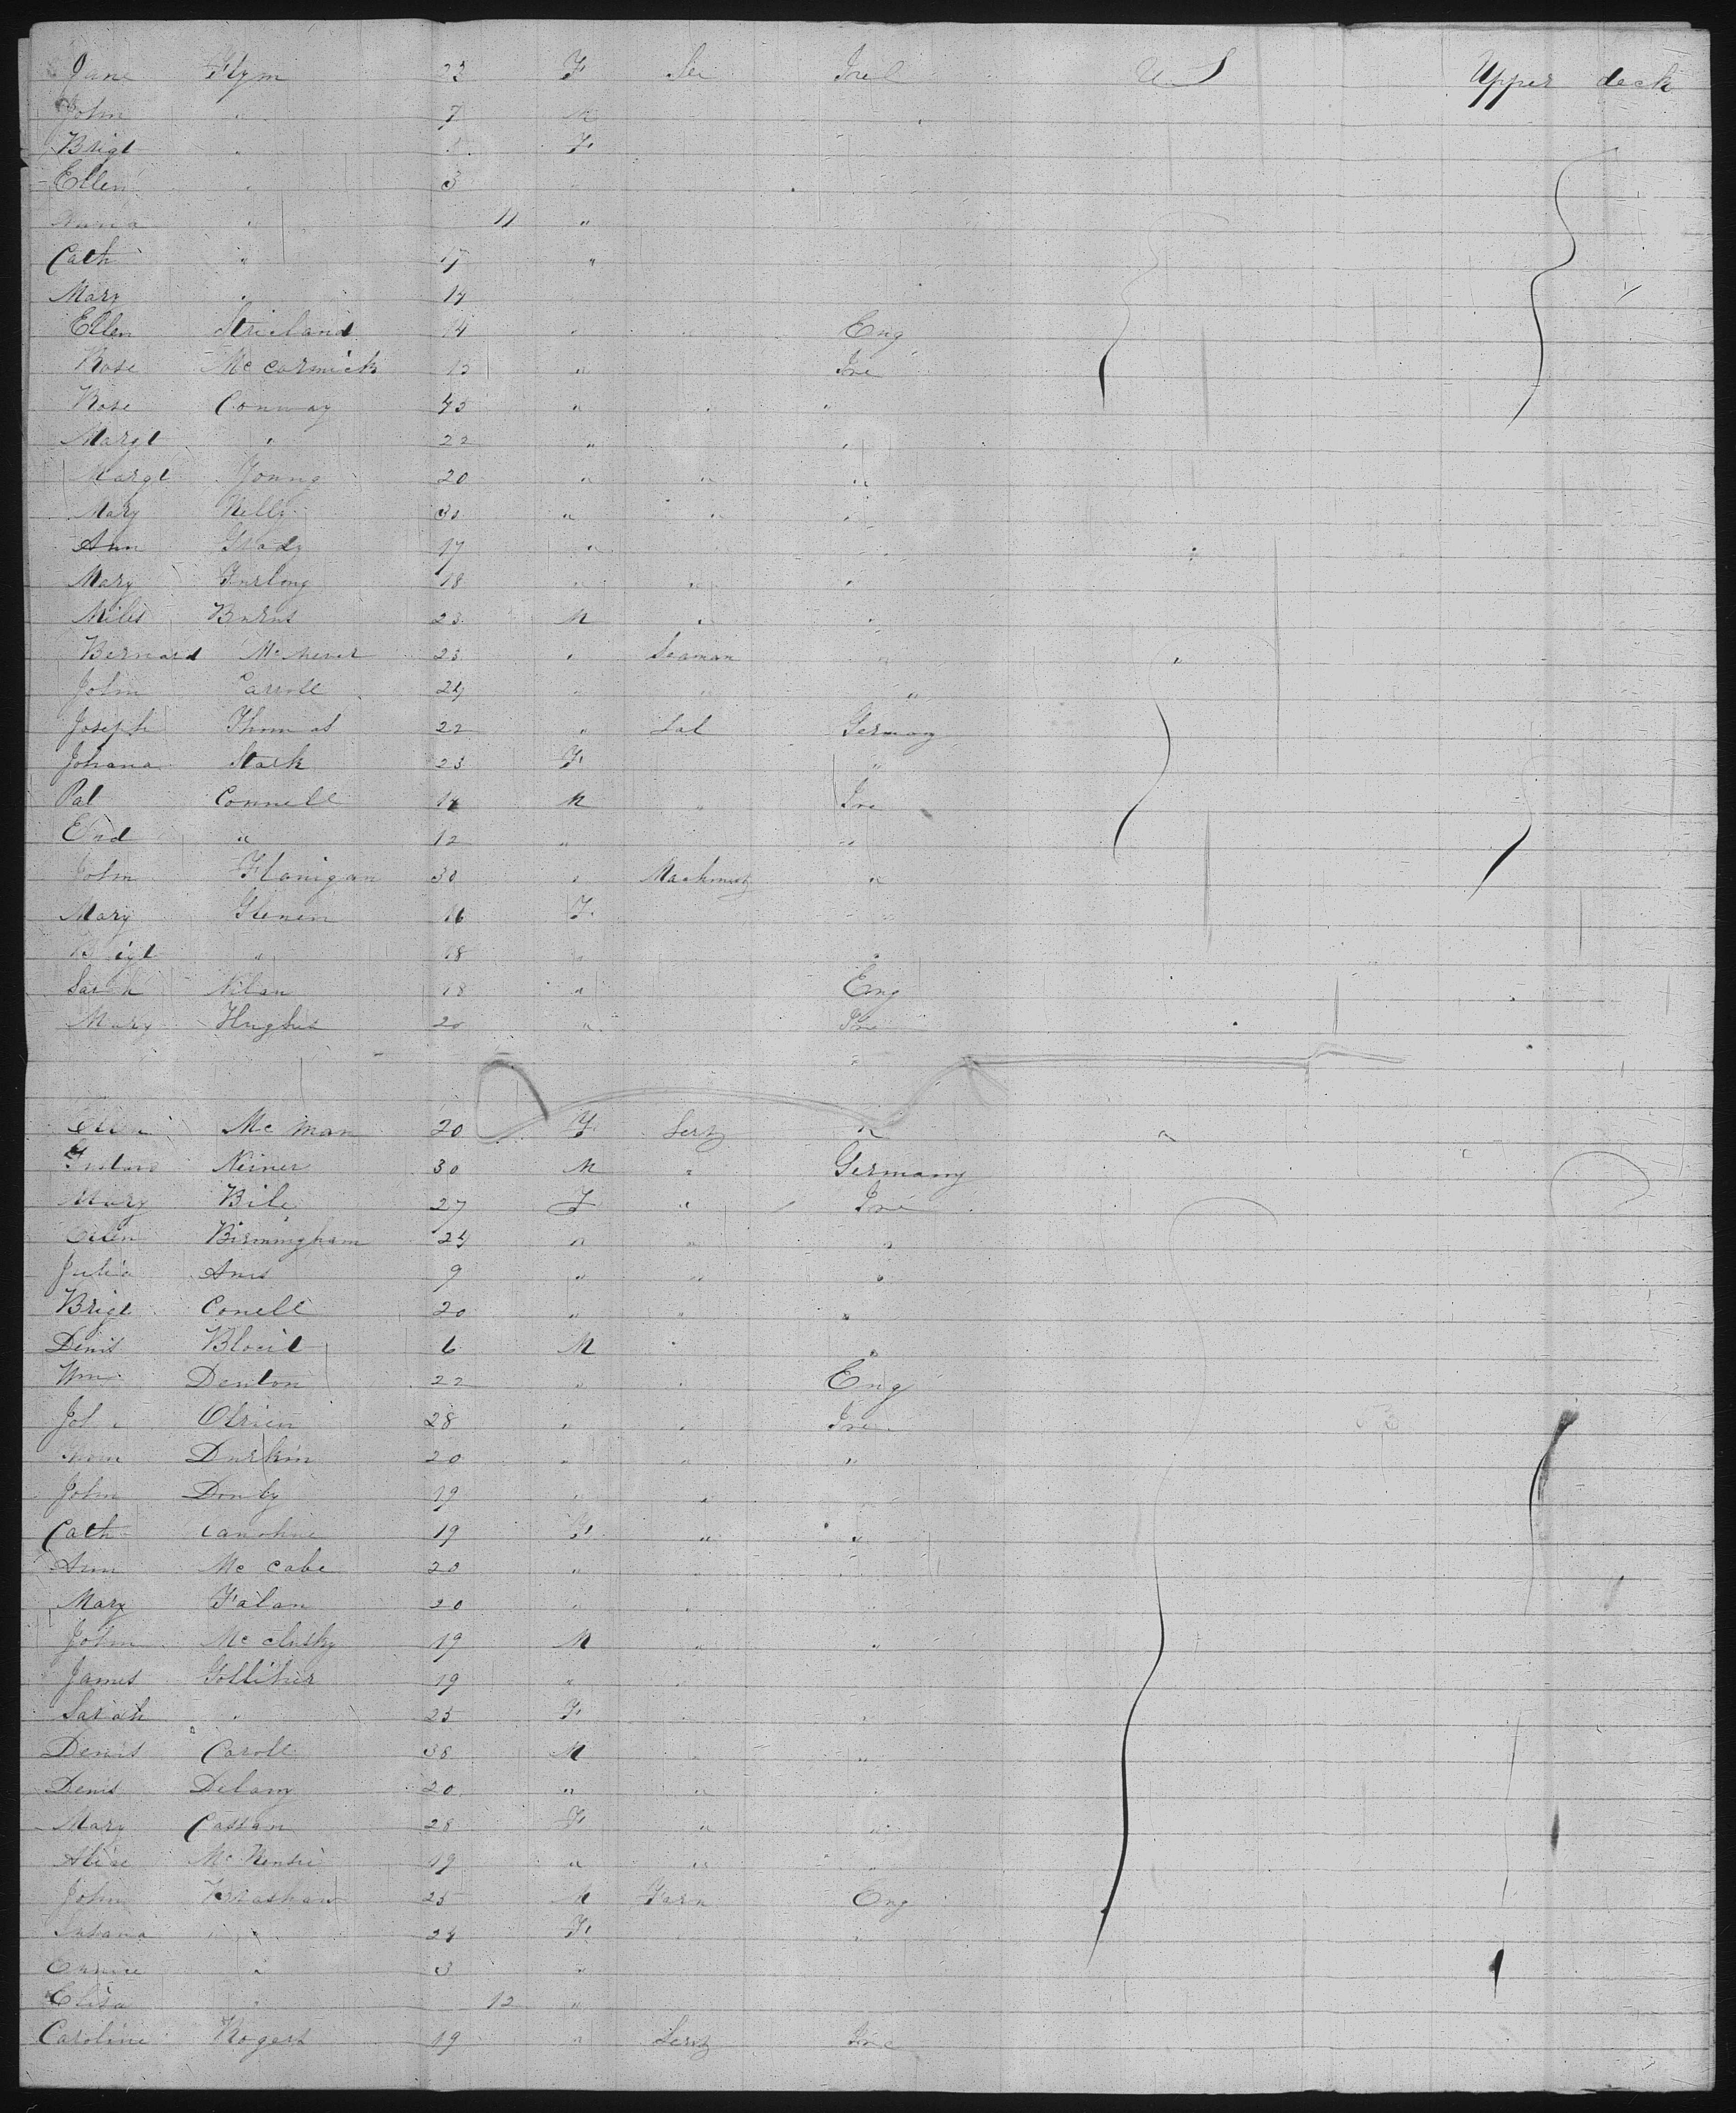 Jane Flym 23 F Ser Irel U S Upper deck
John " 7 M
Brigt " F
Ellen " 3 "
Maria " 11 "
Cath " 17 "
Mary " 14
Ellen Stricland 14 " " Eng
Rose Mc cormick 15 " Ire
Rose Conway 45 " " "
Margt " 22 " "
Margt Young 20 " " "
Mary Kelly 30 " " "
Ann Grady 17 "
Mary Furlong 18 " " "
Miles Burns 23 M " "
Bernard 25 " Seaman " "
John Carroll 24 " " "
Joseph Thomas 22 " Lab Germany
Johana Stark 23 F "
Pat Connell 14 M " Ire
End " 12 " "
John Flanigan 30 " "
Mary Glenen 16 F "
Brigt " 18 " "
Sarah Nilan 18 " Eng
Mary Hughes 20 " Ire
Mc Man 20 F Servt " "
Gustave Neiner 30 M " Germany
Mary Bile 27 F " Ire
Ellen Birmingham 24 " " "
Julia Ams 9 " " "
Brigt Conell 20 " " "
Denis 6 M " "
Wm Denton 22 " " Eng
John Obrien 28 " " Ire
Durkin 20 " " "
John Donby 19 " "
Cath 19 F " "
Ann Mc cabe 20 "
Mary Falan 20 " " "
John Mc clusky 19 M " "
James Golliher 19 "
Sarah " 25 F " "
Denis Caroll 38 M "
Denis Delany 20 " " "
Mary Cassan 28 F " "
Alice 19 " " "
John 25 M Farm Eng
Susana " 24 F "
" 3 "
Elisa " 12 "
Caroline Rogers 19 " Servt Ire